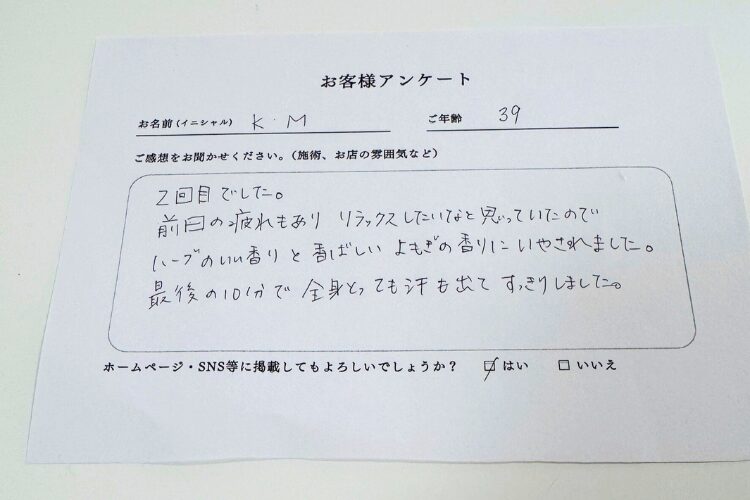 お客様アンケート
お名前(イニシャル) K.M ご年齢 39
ご感想をお聞かせください。(施術、お店の雰囲気など)
2回目でした。
前日の疲れもあり リラックスしたいなと思っていたので
ハーブのいい香りと香ばしい よもぎの香りにいやされました。
最後の10分で 全身とっても汗も出て すっきりしました。
ホームページ・SNS等に掲載してもよろしいでしょうか? ☑はい □いいえ